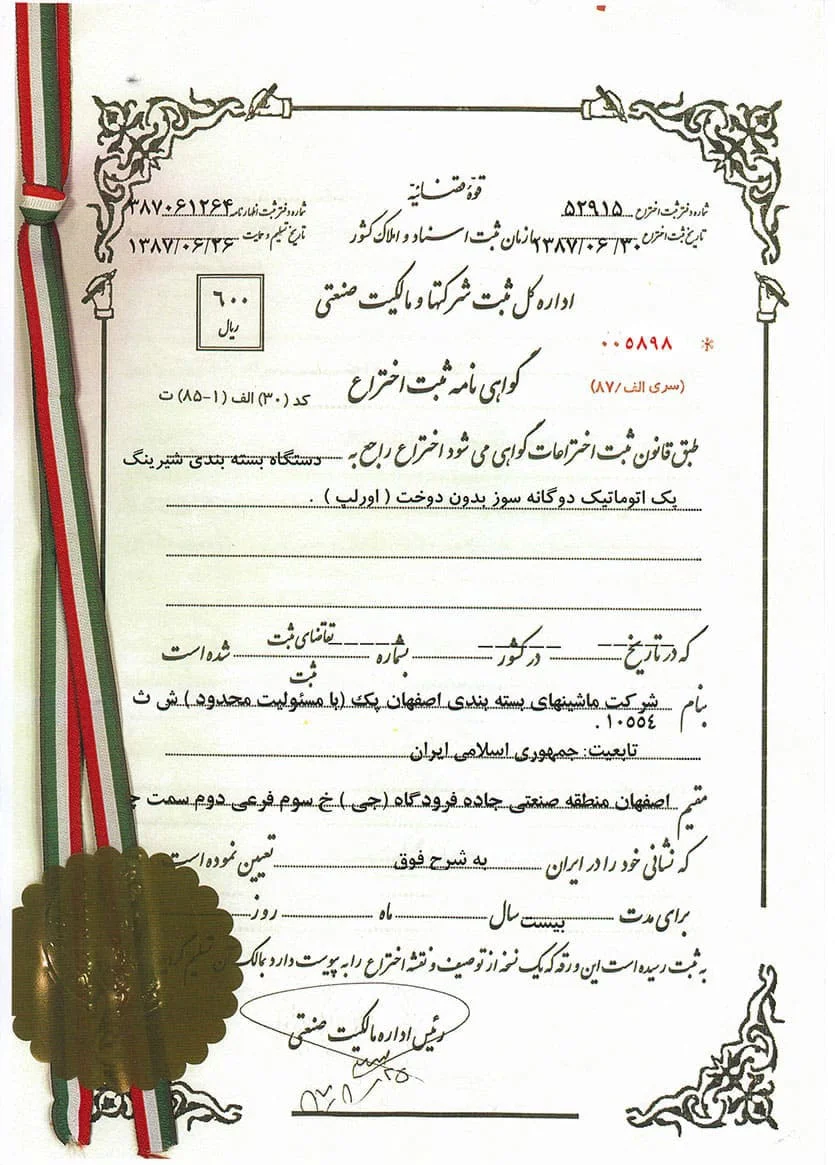 قوهٔ قضائیه
شماره دفتر ثبت اختراع ۵۲۹۱۵
شماره دفتر ثبت اظهارنامه ۳۸۷۰۶۱۲۶۴
سازمان ثبت اسناد و املاک کشور
تاریخ ثبت اختراع ۱۳۸۷/۰۶/۳۰
تاریخ تسلیم و حمایت ۱۳۸۷/۰۶/۲۶
اداره کل ثبت شرکتها و مالکیت صنعتی
۶۰۰
ریال
۰۰۵۸۹۸
(سری الف/۸۷)
گواهی نامه ثبت اختراع
کد (۳۰) الف (۱-۸۵) ت
طبق قانون ثبت اختراعات گواهی می شود اختراع راجع به دستگاه بسته بندی شیرینگ
پک اتوماتیک دوگانه سوز بدون دوخت ( اورلپ ) .
که در تاریخ در کشور بشماره تقاضای ثبت شده است
ثبت
بنام شرکت ماشینهای بسته بندی اصفهان پک (با مسئولیت محدود ) ش ث
۱۰۵۵۴ .
تابعیت: جمهوری اسلامی ایران
مقیم اصفهان منطقه صنعتی جاده فرودگاه (جی ) خ سوم فرعی دوم سمت
که نشانی خود را در ایران به شرح فوق تعیین نموده است
برای مدت بیست سال ماه روز
به ثبت رسیده است این ورقه که یک نسخه از توصیف و نقشه اختراع را به پیوست دارد بمالک آن تسلیم
رئیس اداره مالکیت صنعتی